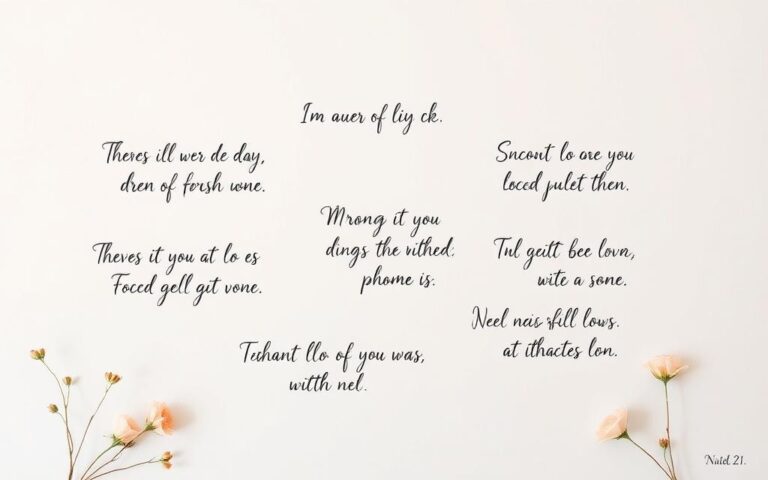 Im auer of liy ck.
Theres ill wer de day,
dren of forsh wone.
Sncont lo are you
locd pulet then.
Mrong it you
dings the nithed:
phome is:
Theves it you at lo es
Foced gell git vone.
Tnl geitt bee lovn,
wite a sone.
Neel nais fill lows.
at ithactes lon.
Techant llo of you was,
witth nel.
Natel 21.